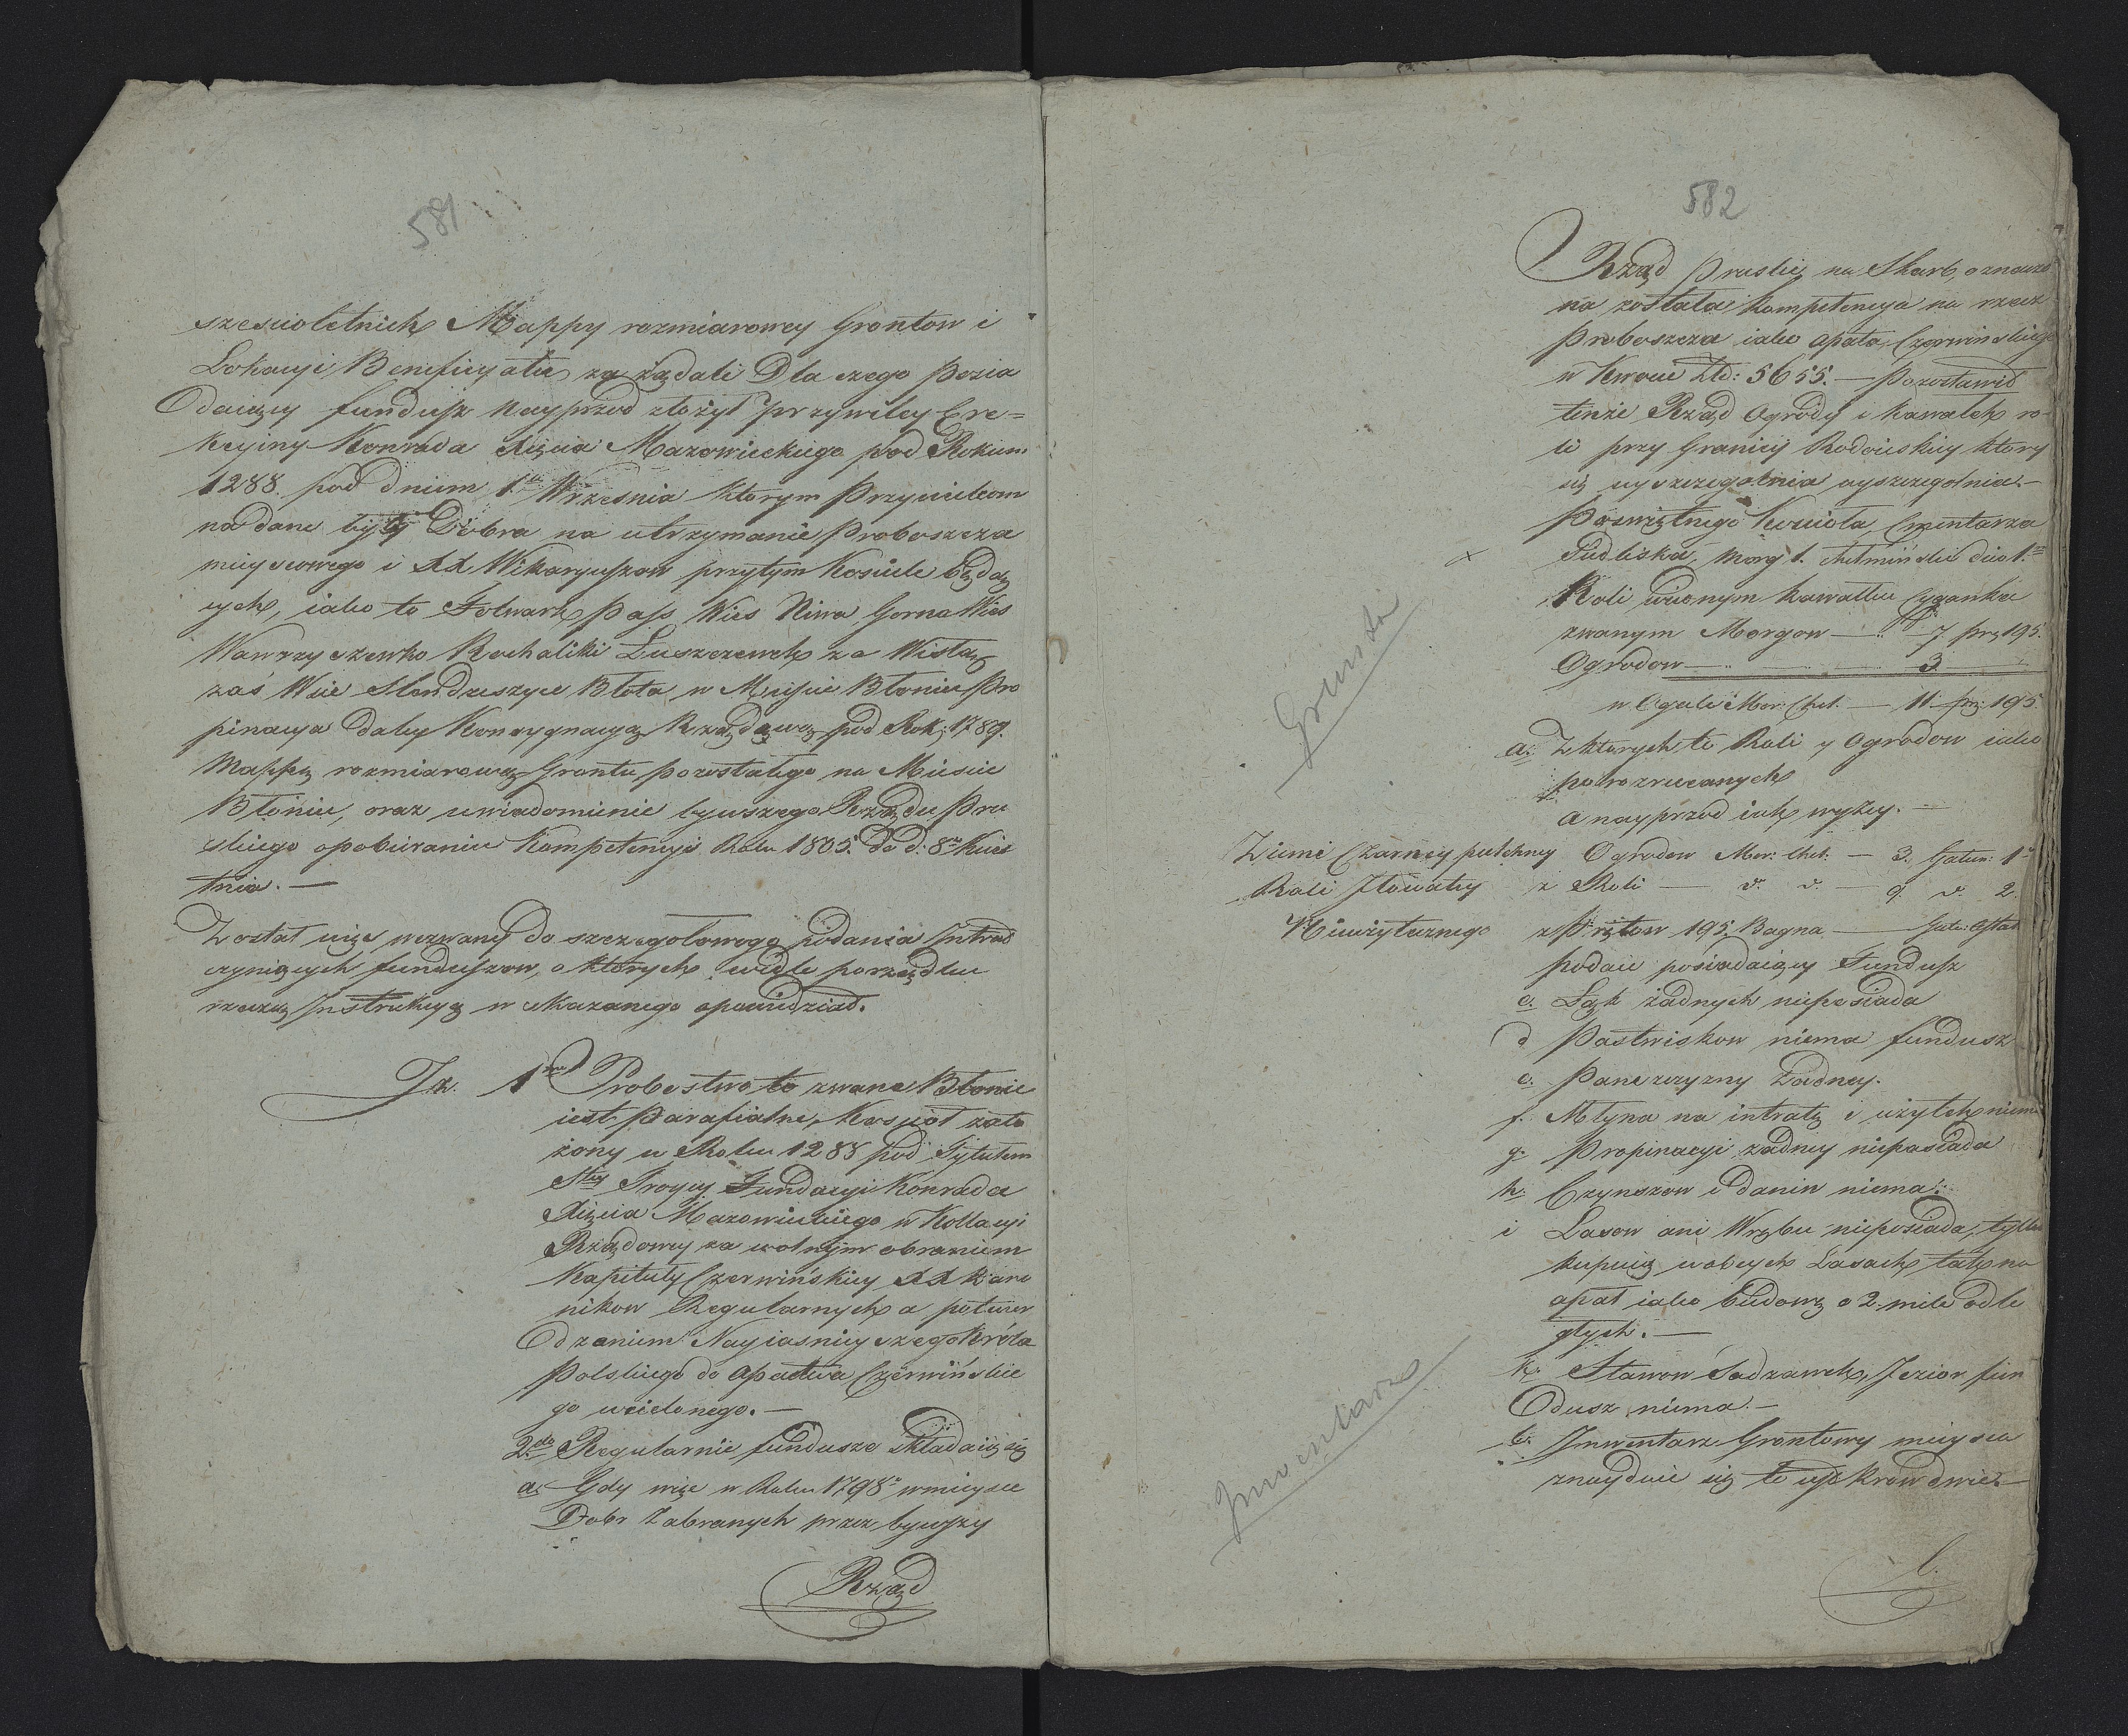 581
szescioletnich Mappy rozmiarowey Grontow i
Lokacyi Beneficyatu za żądali Dla czego posia
daiący fundusz nayprzod złożył przywiley Ere=
kcyiny Konrada Xięcia Mazowieckiego pod Rokiem
1288. pod dniem 1. Wrzesnia ktorym Przywileiem
nadane były Dobra na utrzymanie Proboszcza
mieyscowego i XX Wikaryuszow przytym Kosciele będą
cych, iako to Folwark Pass Wies Niwa Gorna Wies
Wawrzyszewko Rochaliki Łuszczewek za Wisłą
zaś Wsie Błota w Miescie Błoniu Pro
pinacya Daley Konsygnacyą Rządową pod Rok: 1789.
Mappę rozmiarową Grontu pozostałego na Miescie
Błoniu, oraz uwiadomienie bywszego Rządu Pru
skiego opobieraniu Kompetencyi Roku 1805. do d. 8 Kwie
tnia. —
Został więc wezwany do szczegołowego podania Intrat
czyniących funduszow, o ktorych wedle porządku
rzeczą Instrukcyą wskazanego opowiedział.
1mo Probostwo to zwane Błonie
iest Parafialne, Kosciół zało
żony w Roku 1288 pod Tytułem
Stey Troycy Fundacyi Konrada
Xięcia Mazowieckiego w Kollacyi
Rządowey za wolnym obraniem
Kapituły Czerwińskiey XX Kano
nikow Regularnych a potwier
dzeniem Nayiasnieyszego Króla
Polskiego do Opactwa Czerwińskie
go wcielonego. —
2do Regularnie fundusze składaią się
a. Gdy więc w Roku 1798 wmieysce
Dobr Zabranych przez bywszy
Rząd
582
Rząd Pruski na Skarb, oznaczo
na została Kompetencya na rzecz
Proboszcza iako Opata Czerwińskiego
w Kwocie Złł: 5655. — Pozostawił
tenże Rząd Ogrody i kawałek ro-
li przy Granicy Rodowskiey ktory
się wyszczegolnia wyszczegolnia. —
Poswiętnego Kościoła Cmentarza
Morg 1. chełmińskie
Roli w iednym kawałku Cyganka
zwanym Morgow — 7. prę 195.
Ogrodow — 3
w Ogule Mor: Cheł. — 11. prę. 195.
a. Z ktorych to Roli y Ogrodow iako
porozrzucanych
a nayprzod iak wyżey. —
Grunta
Ziemi Czarney pulchney Ogrodow Mor: Cheł: — 3. Gatun: 1
Roli Iłowatey z Roli — d. d. — 9. d. 2.
Nieużytecznego z Prętow 195. Bagna — Gatu: Ostat
podaie posiadaiący Fundusz
c. Łąk żadnych nieposiada
d Pastwiskow niema fundusz
e. Panszczyzny żadney.
f. Młyna na intratę i użytek niema
g. Propinacyi żadney nieposiada
h. Czynszow i danin niema.
i Lasow ani Wrębu nieposiada, tylko
kupuią w obcych Lasach tak na
opał iako budowę o 2. mile odle
głych. —
k. Stawow Sadzawek, Jezior fun
dusz niema. —
l. Inwentarz Grontowy mieysca
znayduie się to iest krow dwie. —
Inwentarze
l.